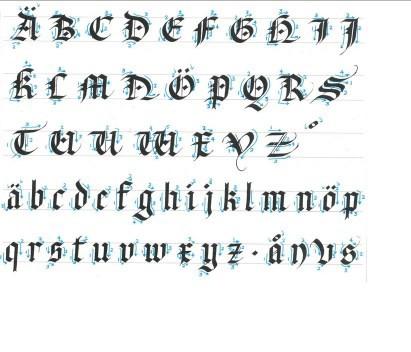 Ä B C D E F G H I J
K L M N Ö P Q R S
T U U W X Y Z
ä b c d e f g h i j k l m n ö p
q r s t u v w x y z · å n v s